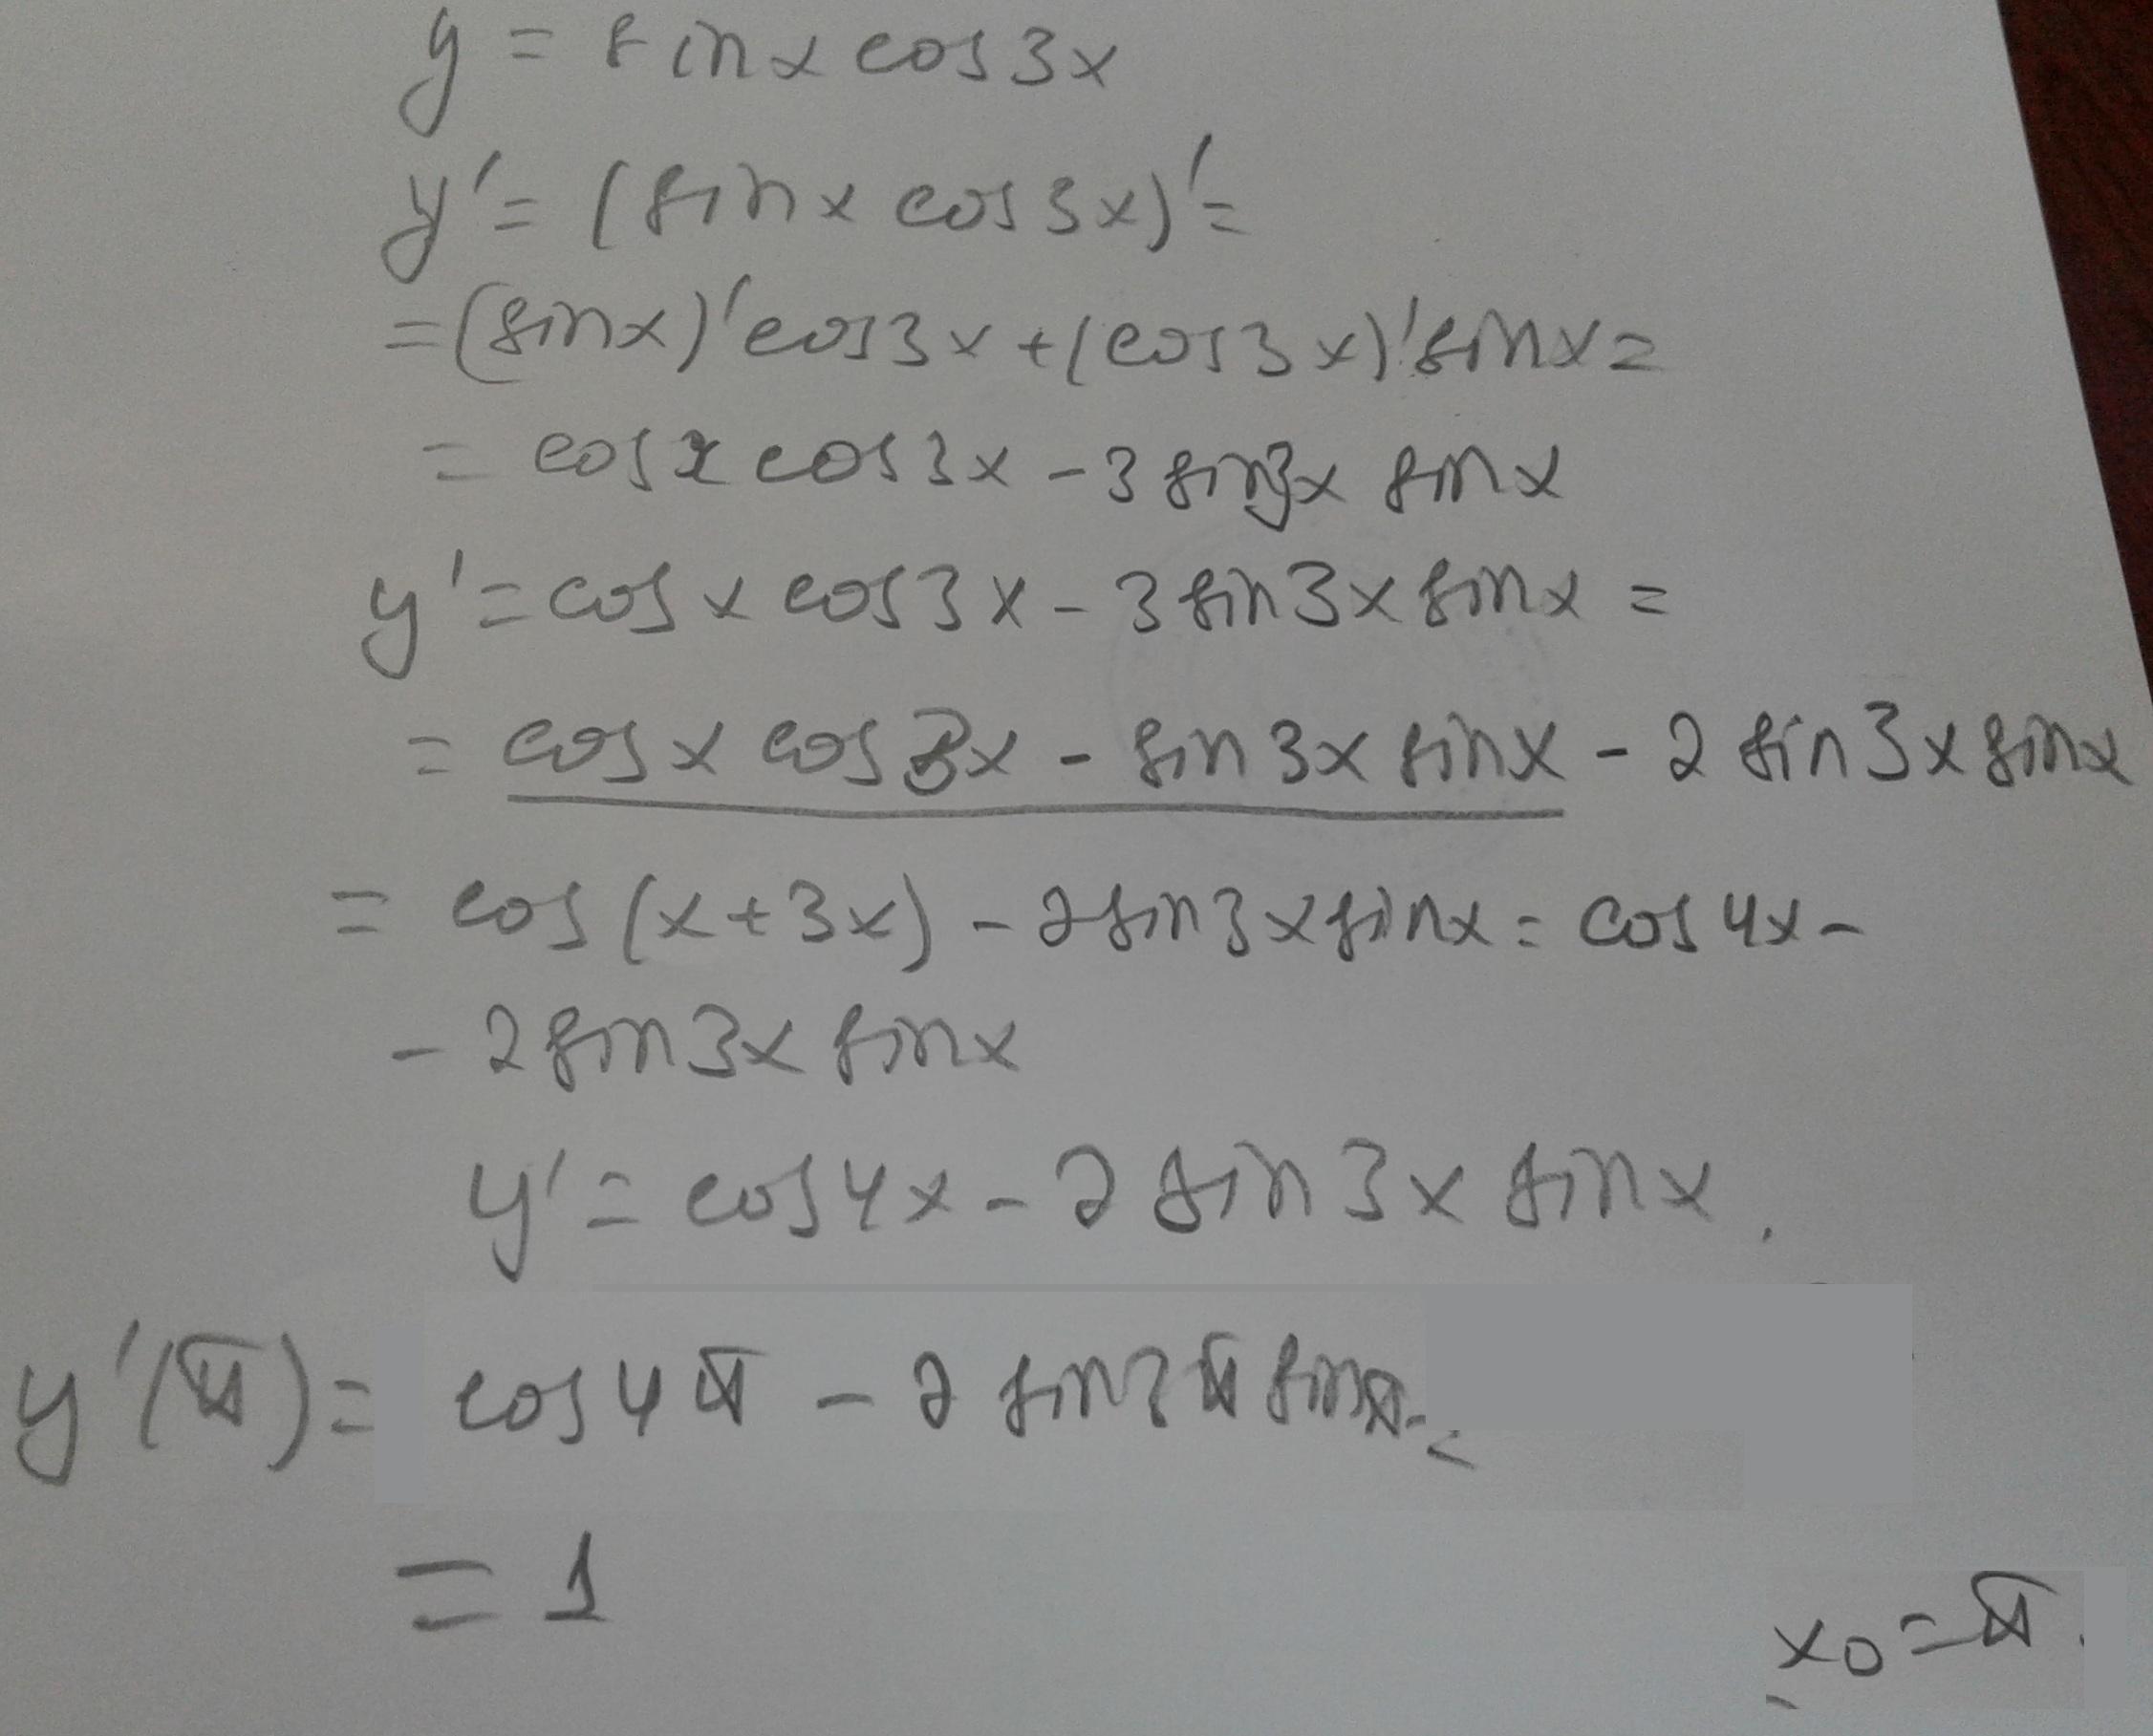 y = sinx cos3x
y' = (sinx cos3x)' =
= (sinx)' cos3x + (cos3x)' sinx =
= cosx cos3x - 3 sin3x sinx
y' = cosx cos3x - 3 sin3x sinx =
= cosx cos3x - sin3x sinx - 2 sin3x sinx
= cos(x+3x) - 2sin3x sinx = cos4x -
- 2 sin3x sinx
y' = cos4x - 2 sin3x sinx.
y'(π) = cos4π - 2 sin3π sinπ =
= 1
x0 = π.